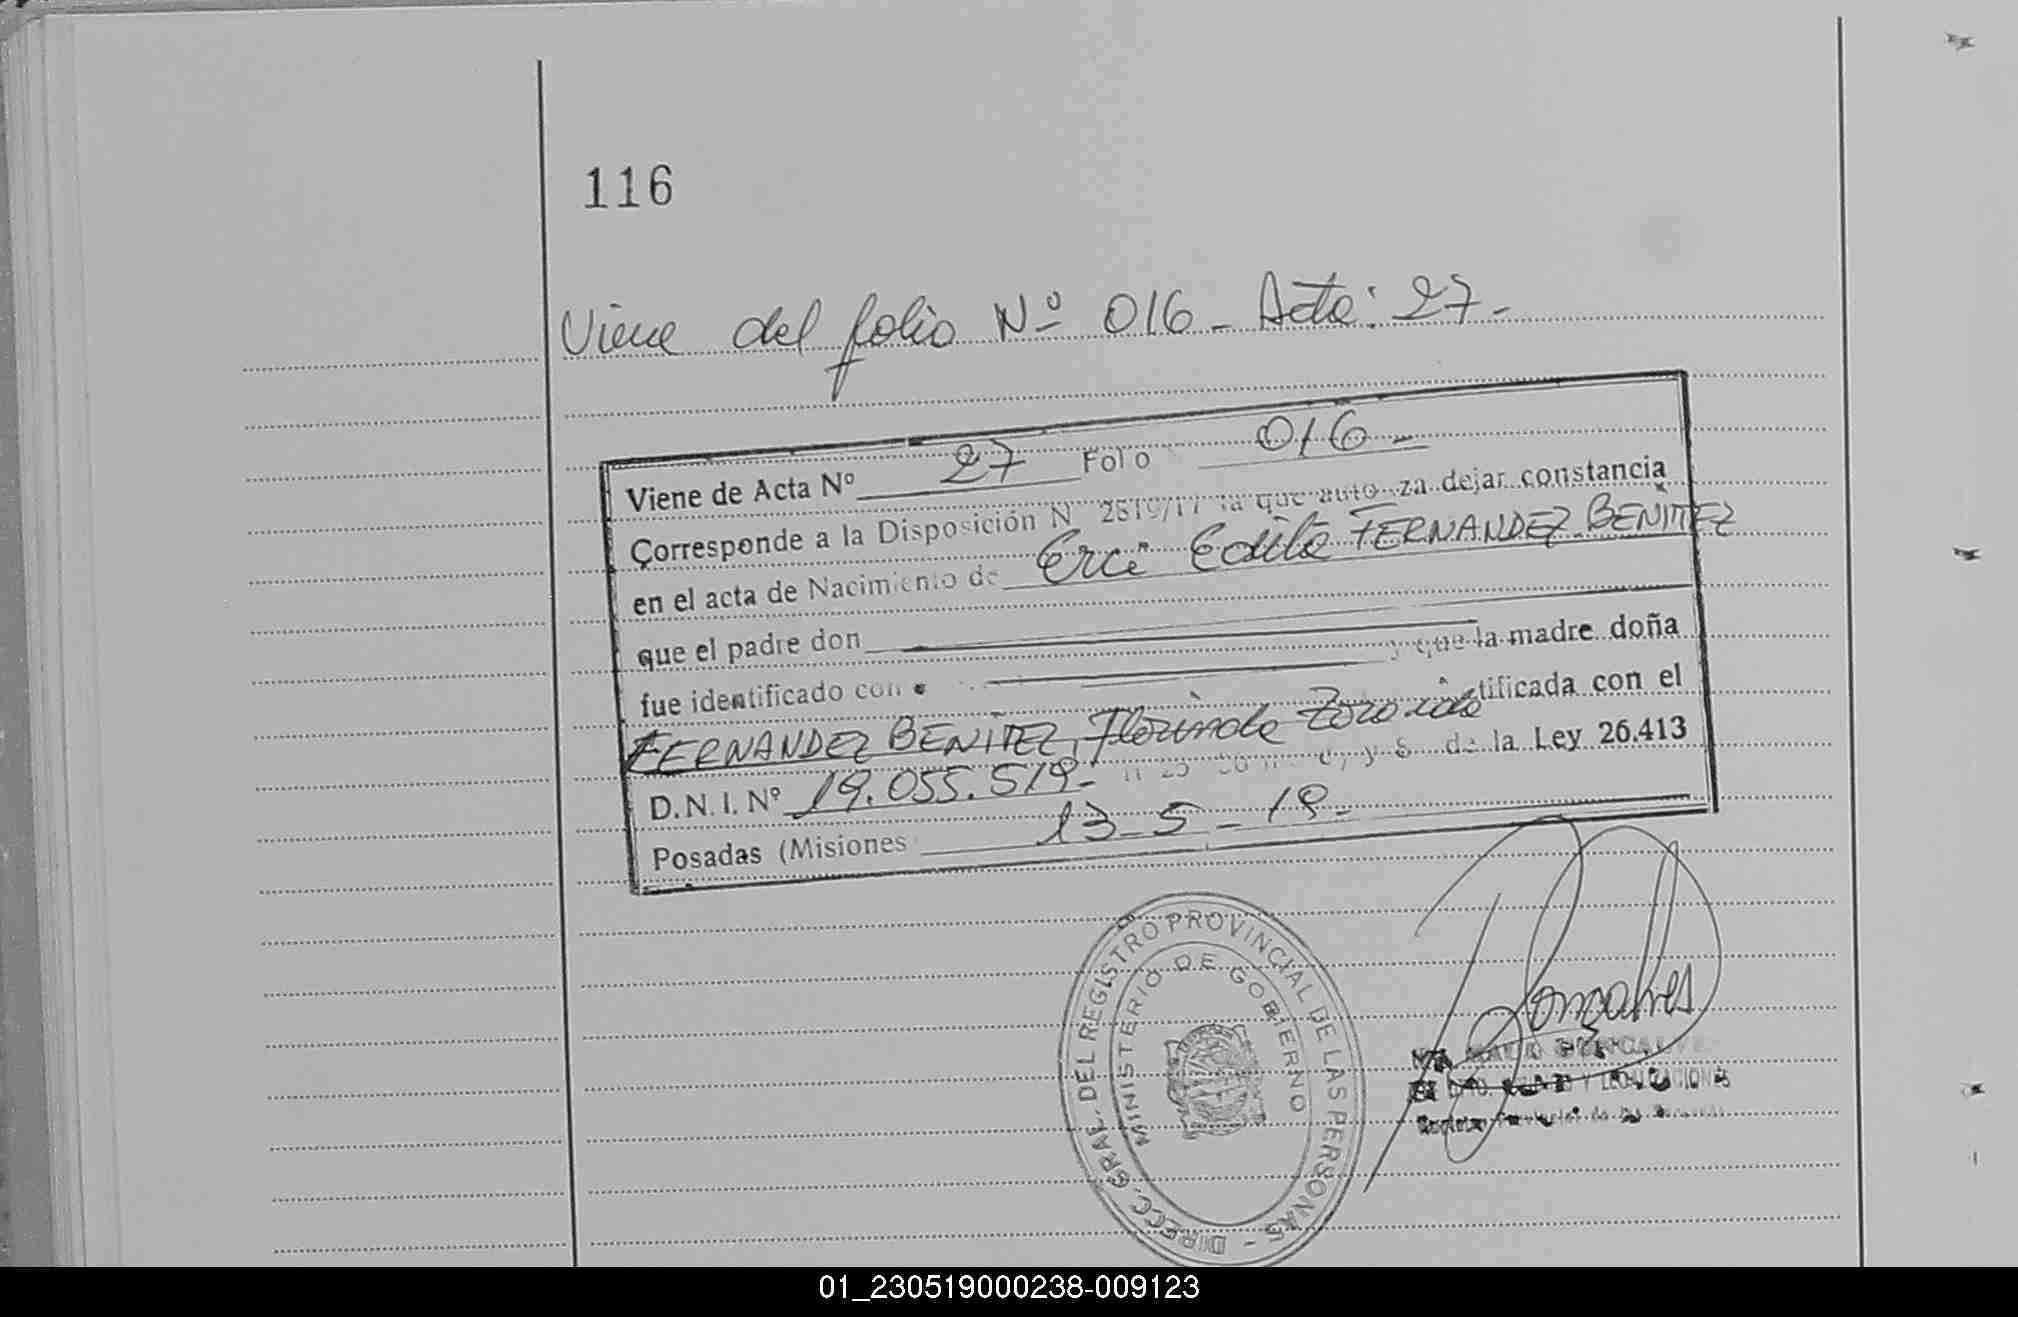 116
Viene del folio Nº 016 - Acta: 27 -
Viene de Acta Nº 27 Folio 016 -
Corresponde a la Disposición N 2819/17 la que autoriza dejar constancia
en el acta de Nacimiento de Erci Edita FERNANDEZ BENITEZ
que el padre don
fue identificado con y que la madre doña
FERNANDEZ BENITEZ, Florinda tificada con el
D.N.I. Nº 19.055.519 - y 8 de la Ley 26.413
Posadas (Misiones 13-5-19-
DIRECC. GRAL. DEL REGISTRO PROVINCIAL DE LAS PERSONAS -
MINISTERIO DE GOBIERNO
Gonçalves
GONCALVES
Y LEGALIZACIONES
01_230519000238-009123